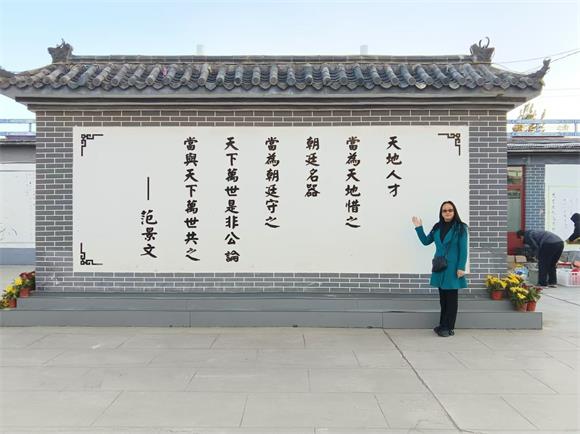 天地人才
當為天地惜之
朝廷名器
當為朝廷守之
天下萬世是非公論
當與天下萬世共之
——范景文